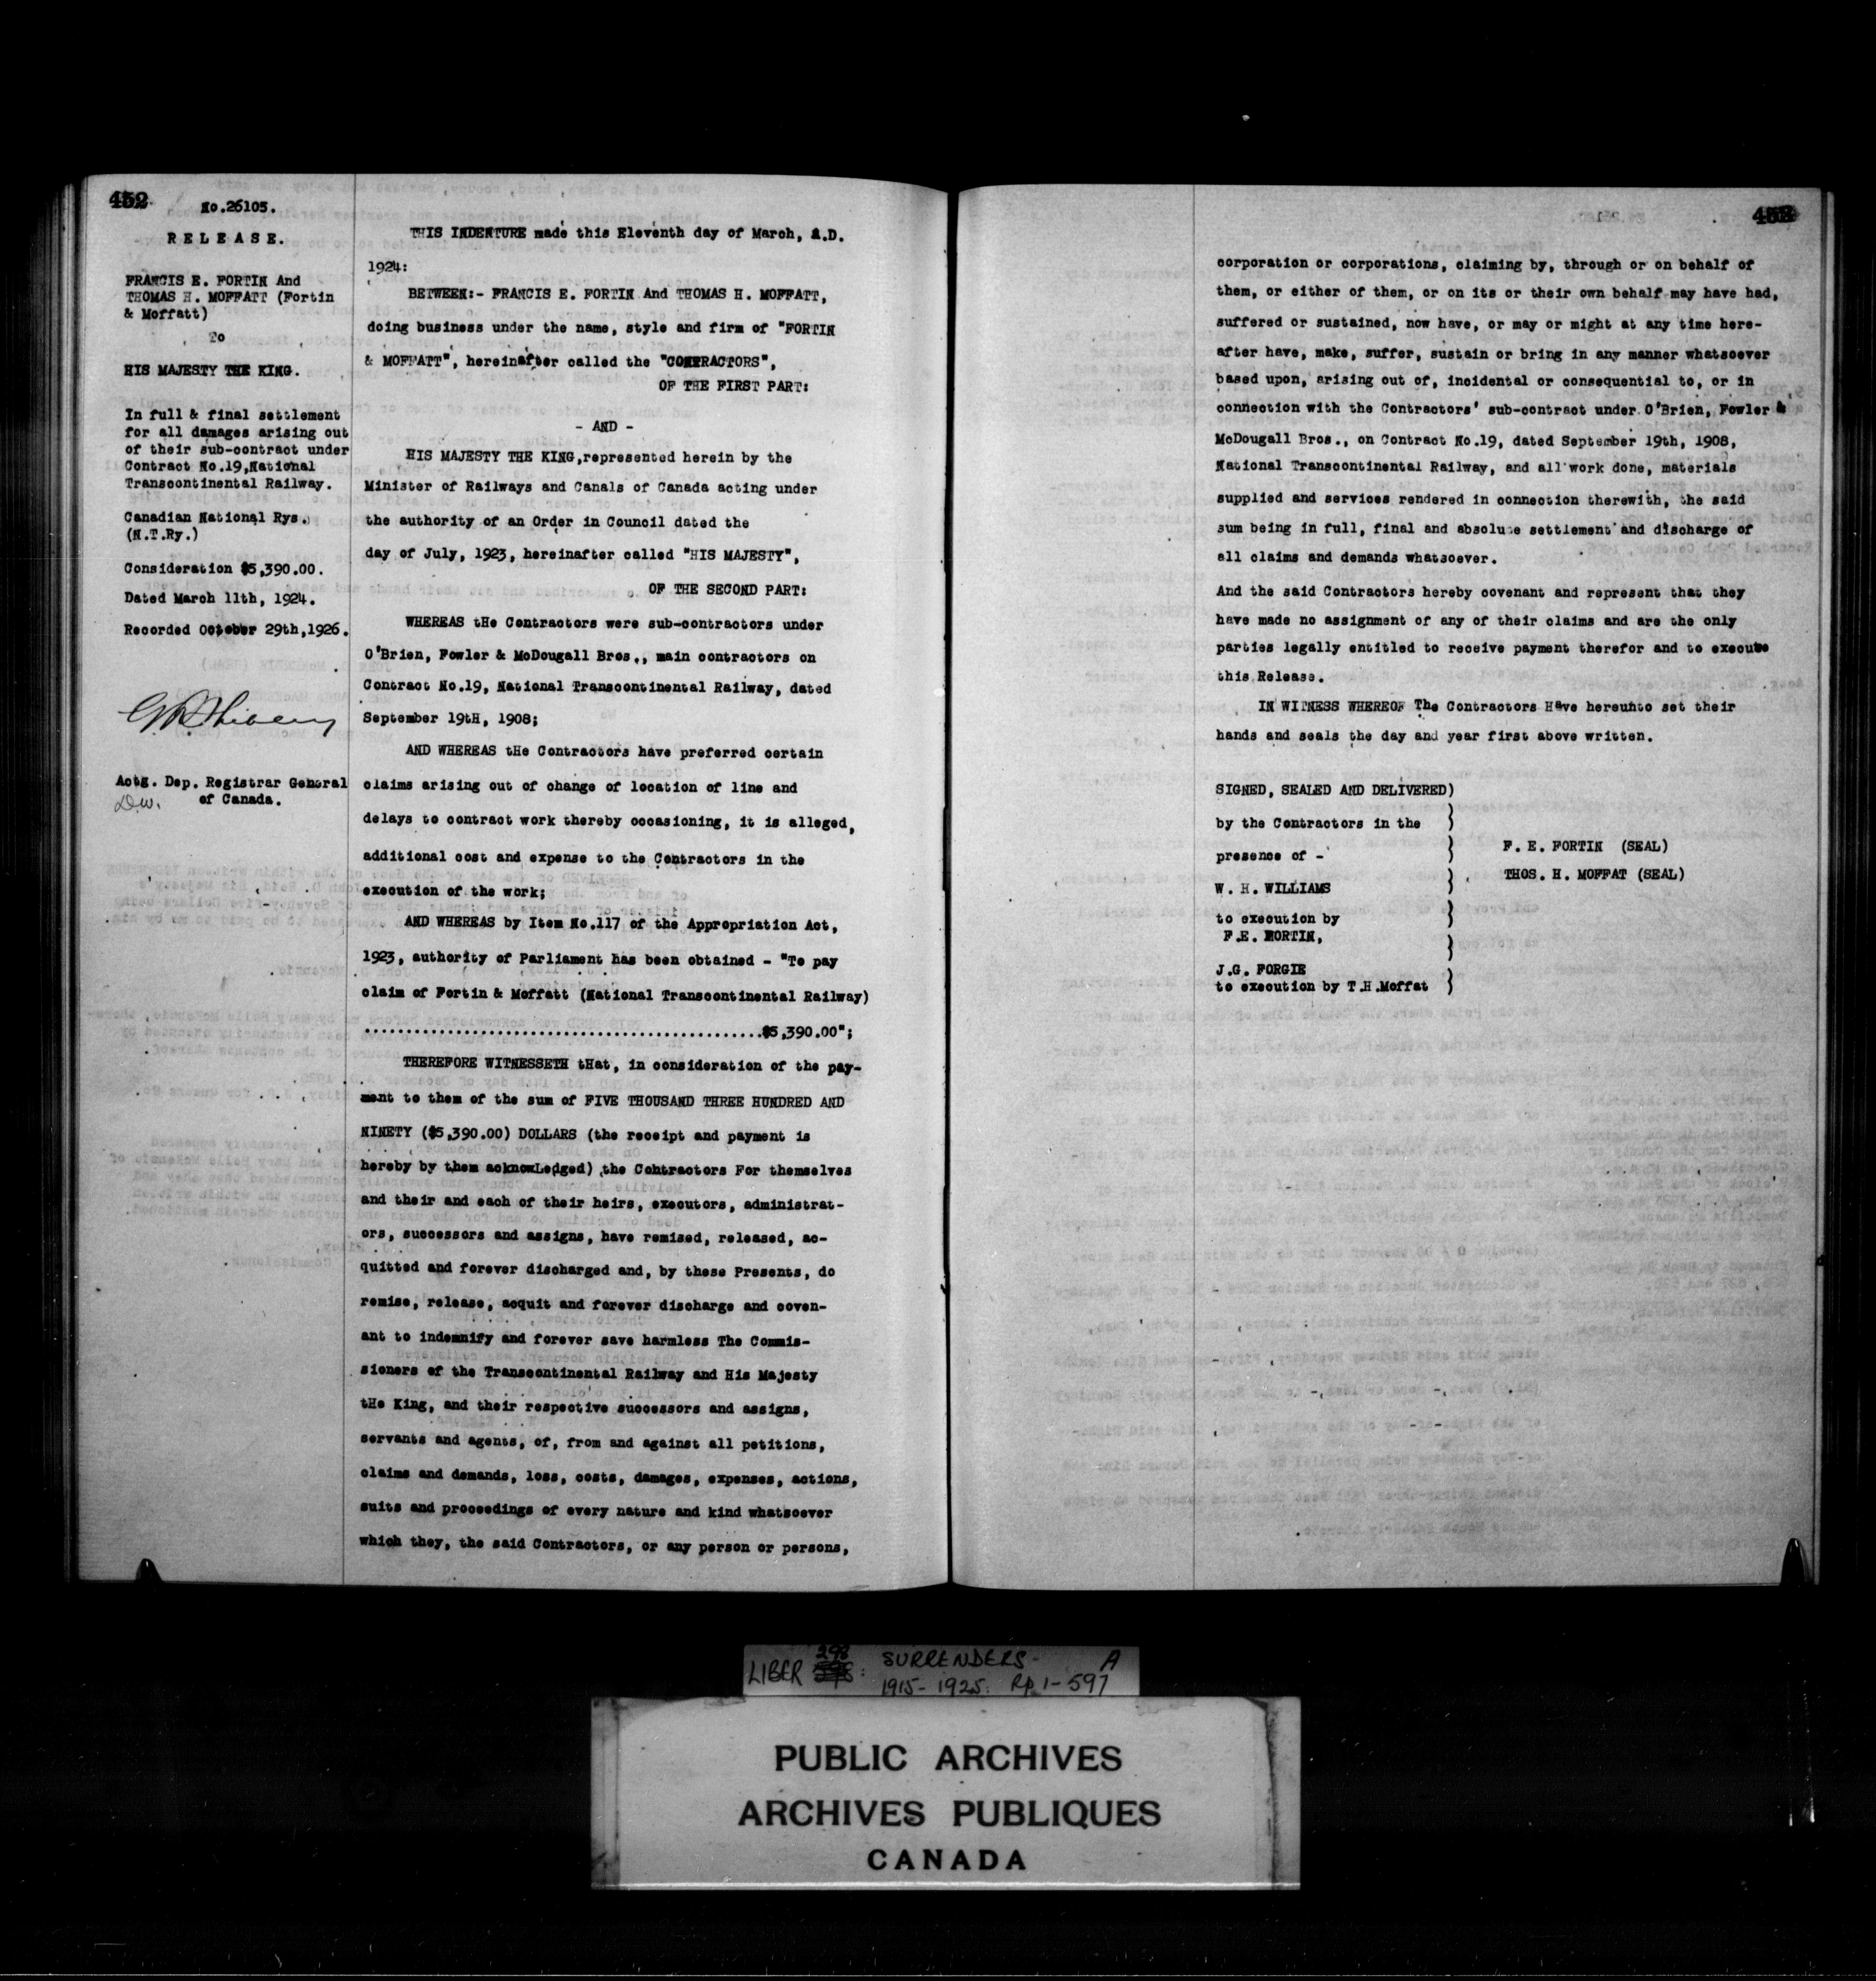 452
No.26105.
RELEASE.
FRANCIS E. FORTIN And
THOMAS H. MOFFATT (Fortin
& Moffatt)
To
HIS MAJESTY THE KING.
In full & final settlement
for all damages arising out
of their sub-contract under
Contract No.19,National
Transcontinental Railway.
Canadian National Rys.
(N.T.Ry.)
Consideration $5,390.00.
Dated March 11th, 1924.
Recorded October 29th,1926.
Actg. Dep. Registrar General
of Canada.
THIS INDENTURE made this Eleventh day of March, A.D.
1924:
BETWEEN:- FRANCIS E. FORTIN And THOMAS H. MOFFATT,
doing business under the name, style and firm of "FORTIN
& MOFFATT", hereinafter called the "CONTRACTORS",
OF THE FIRST PART:
- AND -
HIS MAJESTY THE KING,represented herein by the
Minister of Railways and Canals of Canada acting under
the authority of an Order in Council dated the
day of July, 1923, hereinafter called "HIS MAJESTY",
OF THE SECOND PART:
WHEREAS tHe Contractors were sub-contractors under
O'Brien, Fowler & McDougall Bros., main contractors on
Contract No.19, National Transcontinental Railway, dated
September 19tH, 1908;
AND WHEREAS tHe Contractors have preferred certain
claims arising out of change of location of line and
delays to contract work thereby occasioning, it is alleged,
additional cost and expense to the Contractors in the
execution of the work;
AND WHEREAS by Item No.117 of the Appropriation Act,
1923, authority of Parliament has been obtained - "To pay
claim of Fortin & Moffatt (National Transcontinental Railway)
................................................$5,390.00";
THEREFORE WITNESSETH tHat, in consideration of the pay-
ment to them of the sum of FIVE THOUSAND THREE HUNDRED AND
NINETY ($5,390.00) DOLLARS (the receipt and payment is
hereby by them acknowLedged) the Contractors For themselves
and their and each of their heirs, executors, administrat-
ors, successors and assigns, have remised, released, ac-
quitted and forever discharged and, by these Presents, do
remise, release, acquit and forever discharge and coven-
ant to indemnify and forever save harmless The Commis-
sioners of the Transcontinental Railway and His Majesty
tHe King, and their respective successors and assigns,
servants and agents, of, from and against all petitions,
claims and demands, loss, costs, damages, expenses, actions,
suits and proceedings of every nature and kind whatsoever
which they, the said Contractors, or any person or persons,
453
corporation or corporations, claiming by, through or on behalf of
them, or either of them, or on its or their own behalf may have had,
suffered or sustained, now have, or may or might at any time here-
after have, make, suffer, sustain or bring in any manner whatsoever
based upon, arising out of, incidental or consequential to, or in
connection with the Contractors' sub-contract under O'Brien, Fowler &
McDougall Bros., on Contract No.19, dated September 19th, 1908,
National Transcontinental Railway, and all work done, materials
supplied and services rendered in connection therewith, the said
sum being in full, final and absolute settlement and discharge of
all claims and demands whatsoever.
And the said Contractors hereby covenant and represent that they
have made no assignment of any of their claims and are the only
parties legally entitled to receive payment therefor and to execute
this Release.
IN WITNESS WHEREOF The Contractors Have hereunto set their
hands and seals the day and year first above written.
SIGNED, SEALED AND DELIVERED)
by the Contractors in the )
presence of - )
F. E. FORTIN (SEAL)
THOS. H. MOFFAT (SEAL)
W. H. WILLIAMS )
to execution by )
F.E. FORTIN, )
J.G. FORGIE
to execution by T.H.Moffat )
LIBER 298: SURRENDERS- A
1915-1925. Pp 1-597
PUBLIC ARCHIVES
ARCHIVES PUBLIQUES
CANADA